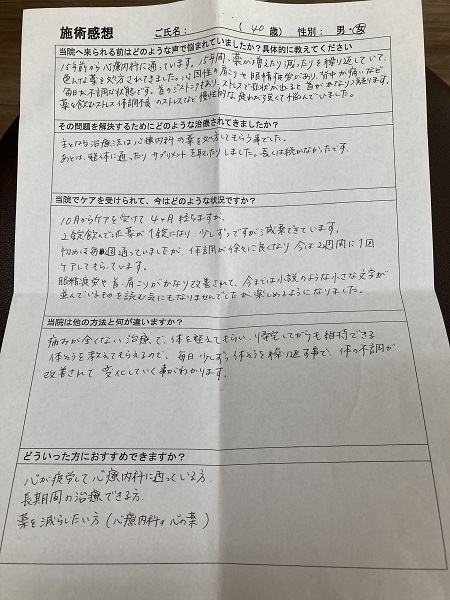 施術感想 ご氏名: ( 40 歳) 性別: 男・女
当院へ来られる前はどのような声で悩まれていましたか?具体的に教えてください
15年前から心療内科に通っています。15年間、薬が増えたり減ったりを繰り返していて、
色んな薬を処方されてきました。心因性の肩こりや眼精疲労があり、背中が痛いなど
毎日が不調な状態です。首のジストニアもあり、ストレスで症状が出ると首がかなり
薬を飲むストレス 体調不良のストレスなど慢性的な疲れが強くて悩んでいました。
その問題を解決するためにどのような治療されてきましたか?
主となる治療法は心療内科の薬を処方してもらう事でした。
あとは、整体に通ったり サプリメントを取ったりしました。長くは続かなかったです。
当院でケアを受けられて、今はどのような状況ですか?
10月からケアを受けて 4ヶ月経ちますが、
2錠飲んでいた薬が1錠になり 少しずつですが減薬できています。
初めは毎週通っていましたが、体調が徐々に良くなり 今は2週間に1回
ケアしてもらっています。
眼精疲労や首・肩こりがかなり改善されて、今までは小説のような小さな文字が
並んでいるものを読む気にもなりませんでしたが 楽しめるようになりました。
当院は他の方法と何が違いますか?
痛みが全くない治療で、体を整えてもらい、帰宅してからも維持できる
体そうを教えてもらえるので、毎日少しずつ体そうを繰り返す事で、体の不調が
改善されて 変化していく事がわかります。
どういった方におすすめできますか?
心が疲労して心療内科に通っている方
長期間の治療できる方
薬を減らしたい方 (心療内科や心の薬)